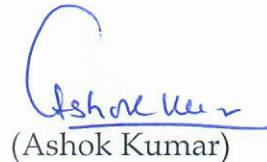 Ashok Kumar
(Ashok Kumar)